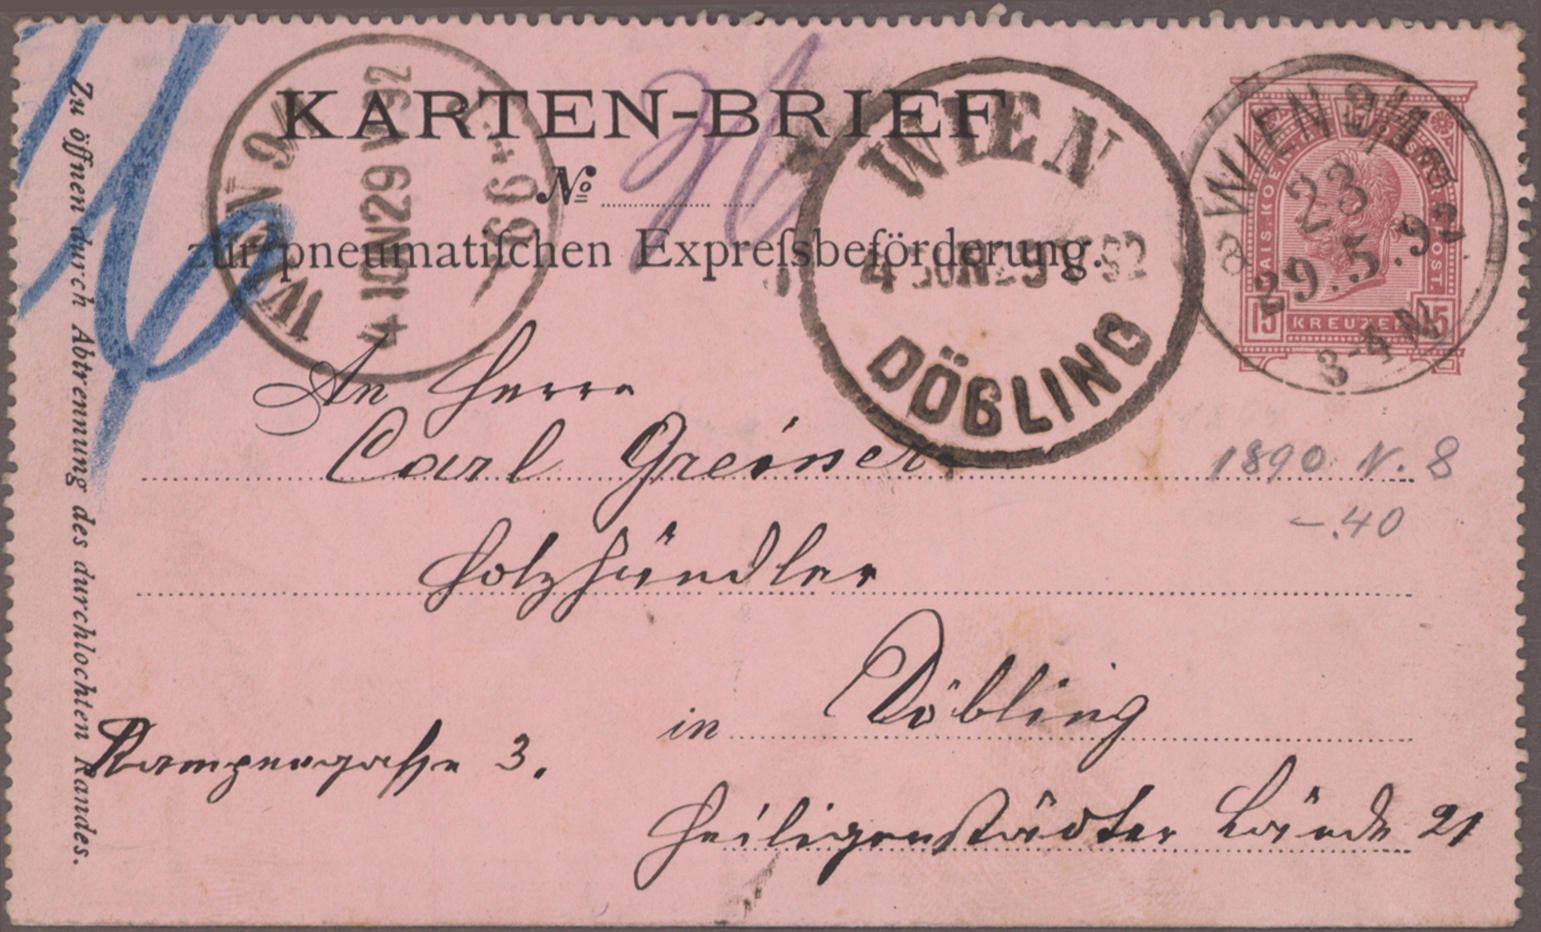 KARTEN-BRIEF
No
zur pneumatiſchen Expreſsbeförderung.
Zu öffnen durch Abtrennung des durchlochten Randes.
WIEN 9/
4 10N 29 V 92
6 6
WIEN
4 29 92
DÖBLING
WIEN 9/1
23
29.5.92
3-4 N
KAIS. KOE POST.
15 KREUZER 15
An Herrn
Carl Greiner
Holzhändler
1890 N. 8
-.40
in Döbling
Rampengasse 3.
Heiligenstädter Lände 21